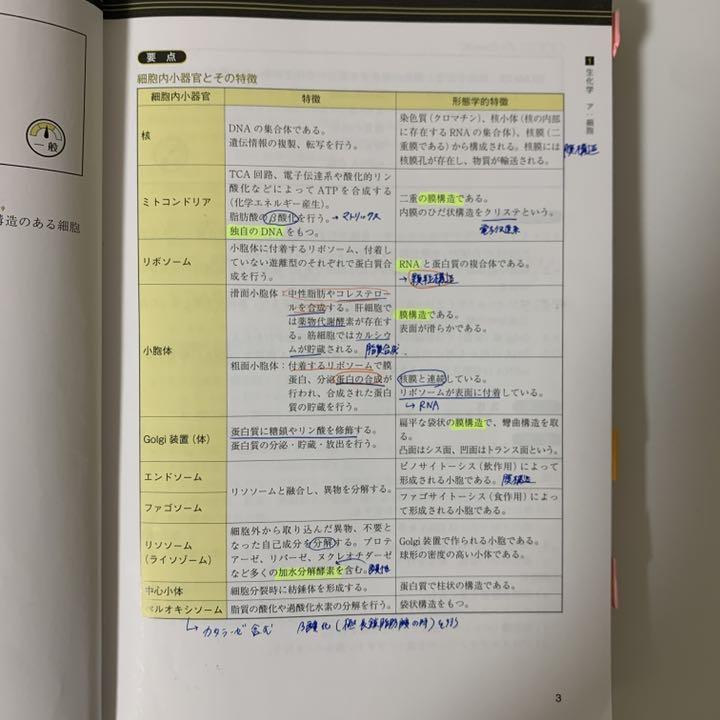 一般
構造のある細胞
要 点
1 生化学 ア:細胞
細胞内小器官とその特徴
細胞内小器官 特徴 形態学的特徴
核
DNA の集合体である。
遺伝情報の複製、転写を行う。
染色質(クロマチン)、核小体(核の内部
に存在する RNA の集合体)、核膜(二
重膜である)から構成される。核膜には
核膜孔が存在し、物質が輸送される。
膜構造
ミトコンドリア
TCA 回路、電子伝達系や酸化的リン
酸化などによって ATP を合成する
(化学エネルギー産生)。
脂肪酸のβ酸化を行う。→マトリックス
独自の DNA をもつ。
二重の膜構造である。
内膜のひだ状構造をクリステという。
電子伝達系
リボソーム
小胞体に付着するリボソーム、付着し
ていない遊離型のそれぞれで蛋白質合
成を行う。
RNA と蛋白質の複合体である。
小胞体
滑面小胞体:中性脂肪やコレステロー
ルを合成する。肝細胞で
は薬物代謝酵素が存在す
る。筋細胞ではカルシウ
ムが貯蔵される。 脂質合成
膜構造である。
表面が滑らかである。
粗面小胞体:付着するリボソームで膜
蛋白、分泌蛋白の合成が
行われ、合成された蛋白
質の貯蔵を行う。
核膜と連続している。
リボソームが表面に付着している。
↳ RNA
Golgi 装置(体)
蛋白質に糖鎖やリン酸を修飾する。
蛋白質の分泌・貯蔵・放出を行う。
扁平な袋状の膜構造で、彎曲構造を取
る。
凸面はシス面、凹面はトランス面という。
エンドソーム
ファゴソーム
リソソームと融合し、異物を分解する。
ピノサイトーシス(飲作用)によって
形成される小胞である。 膜構造
ファゴサイトーシス(食作用)によっ
て形成される小胞である。
リソソーム
(ライソゾーム)
細胞外から取り込んだ異物、不要と
なった自己成分を分解する。プロテ
アーゼ、リパーゼ、ヌクレオチダーゼ
など多くの加水分解酵素を含む。酸性
Golgi 装置で作られる小胞である。
球形の密度の高い小体である。
中心小体
細胞分裂時に紡錘体を形成する。
蛋白質で柱状の構造である。
ペルオキシソーム
脂質の酸化や過酸化水素の分解を行う。
袋状構造をもつ。
↳ カタラーゼ含む β酸化(極長鎖脂肪酸の時)を
3